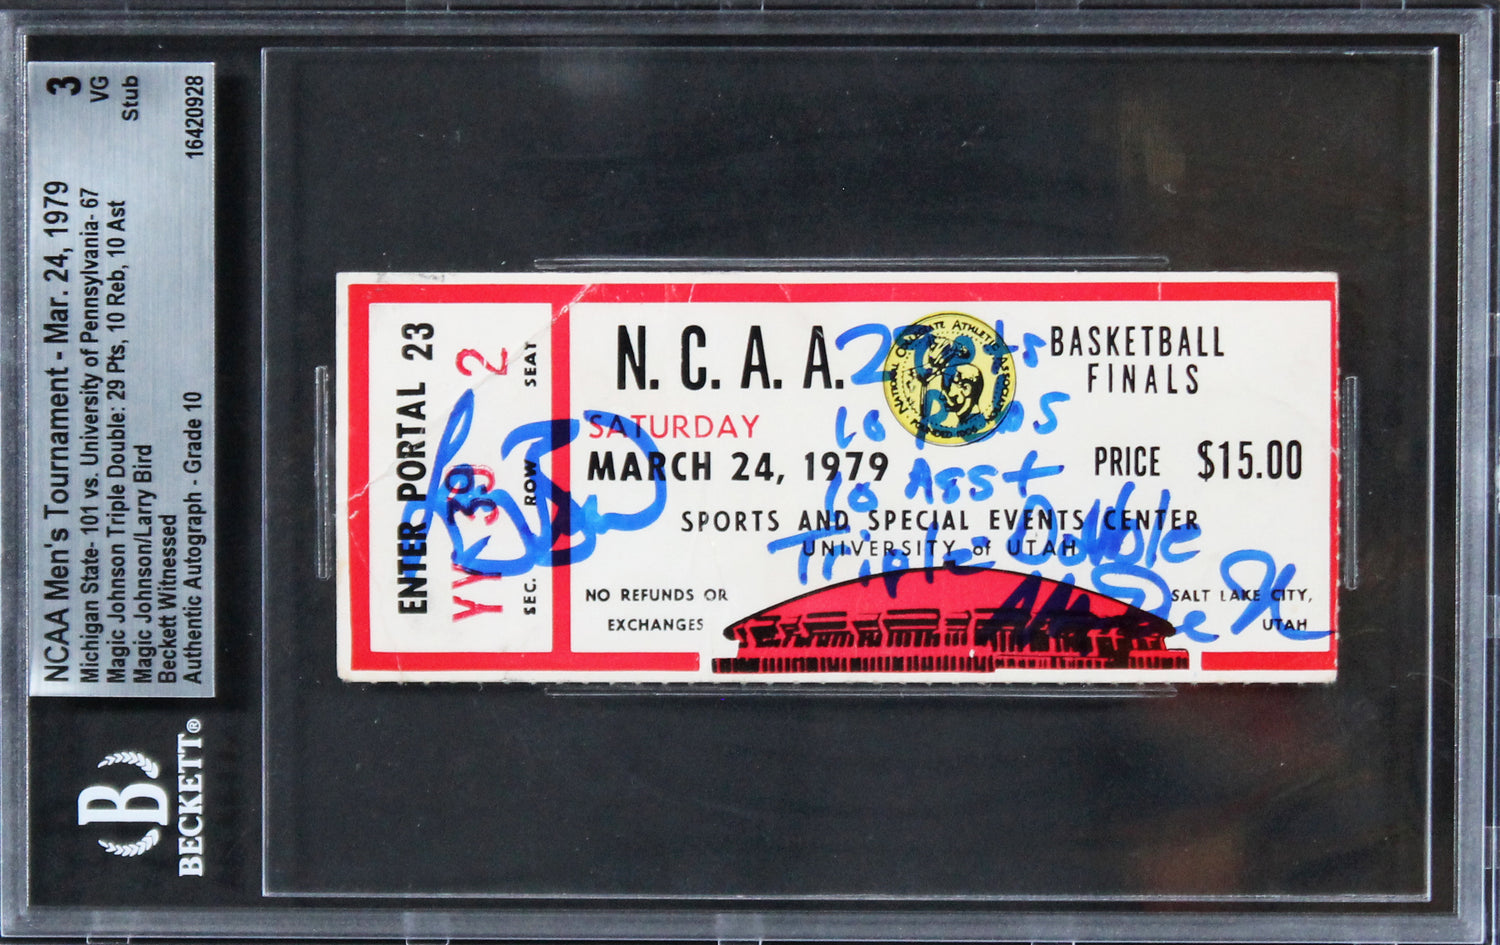 NCAA Men's Tournament - Mar. 24, 1979
Michigan State- 101 vs. University of Pennsylvania- 67
Magic Johnson Triple Double: 29 Pts, 10 Reb, 10 Ast
Magic Johnson/Larry Bird
Beckett Witnessed
Authentic Autograph - Grade 10
3
VG
Stub
16420928
B
BECKETT®
ENTER PORTAL 23
YY 39 2
SEC. ROW SEAT
Larry Bird
N. C. A. A.
NATIONAL COLLEGIATE ATHLETIC ASSOCIATION
FOUNDED 1906
BASKETBALL
FINALS
SATURDAY
MARCH 24, 1979
PRICE $15.00
SPORTS AND SPECIAL EVENTS CENTER
UNIVERSITY of UTAH
NO REFUNDS OR
EXCHANGES
SALT LAKE CITY,
UTAH
29 pts
10
10 Asst
Triple Double